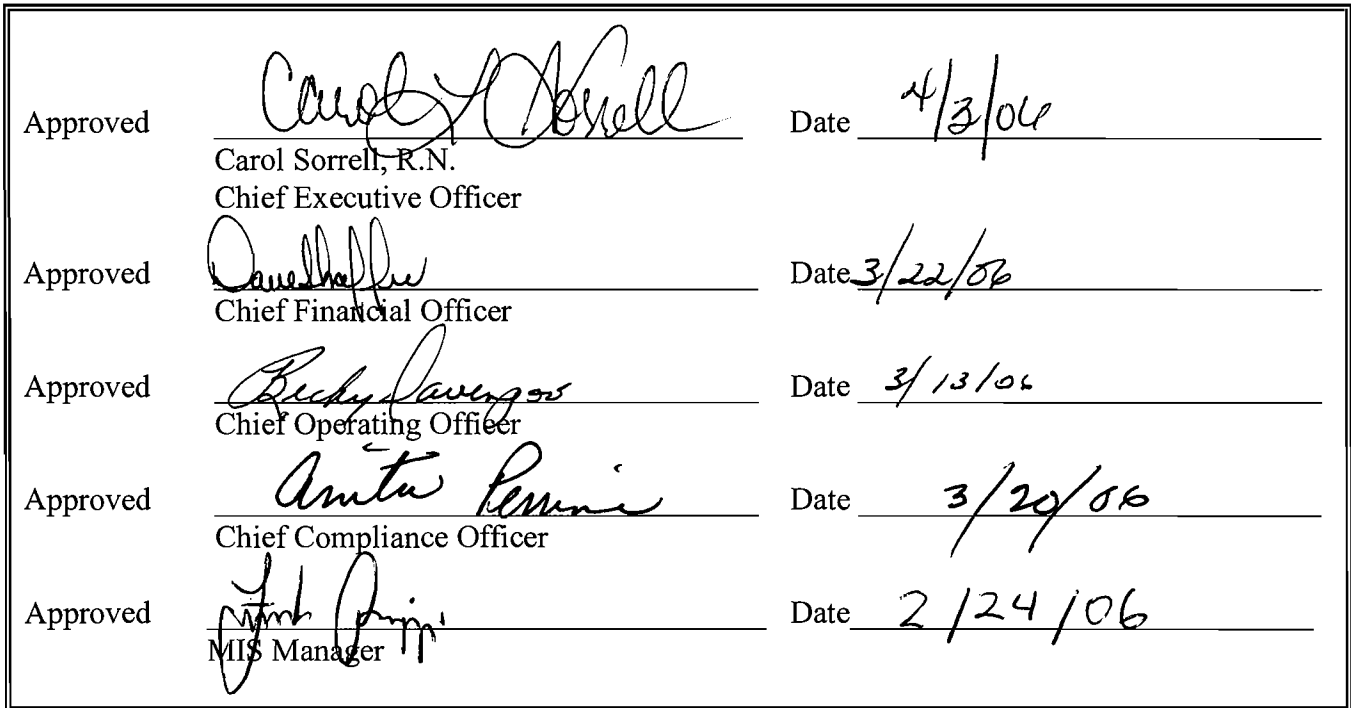 Approved Carol L Sorrell Date 4/3/06
Carol Sorrell, R.N.
Chief Executive Officer
Approved Date 3/22/06
Chief Financial Officer
Approved Becky Date 3/13/06
Chief Operating Officer
Approved Anita Date 3/20/06
Chief Compliance Officer
Approved Date 2/24/06
MIS Manager